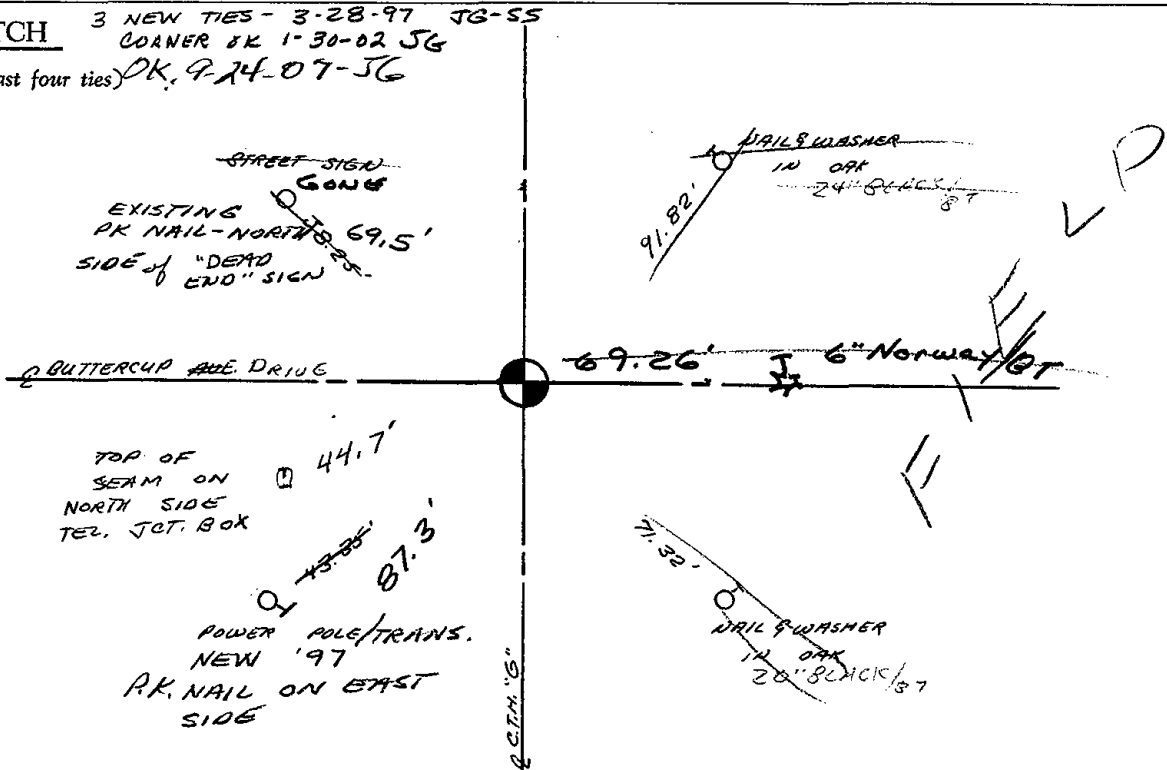 TCH
3 NEW TIES - 3-28-97 JG-SS
CORNER OK 1-30-02 JG
ast four ties) OK. 9-24-07-JG
STREET SIGN
GONE
EXISTING
PK NAIL-NORTH 69.5'
SIDE of "DEAD
END" SIGN
NAIL & WASHER
IN OAK
24" BLACK/BT
91.82'
℄ BUTTERCUP AVE DRIVE
69.26' 6" Norway/BT
TOP OF
SEAM ON
NORTH SIDE
TEL. JCT. BOX
44.7'
87.3'
POWER POLE/TRANS.
NEW '97
P.K. NAIL ON EAST
SIDE
71.32'
NAIL & WASHER
IN OAK
20" BLACK/BT
℄ C.T.H. "G"